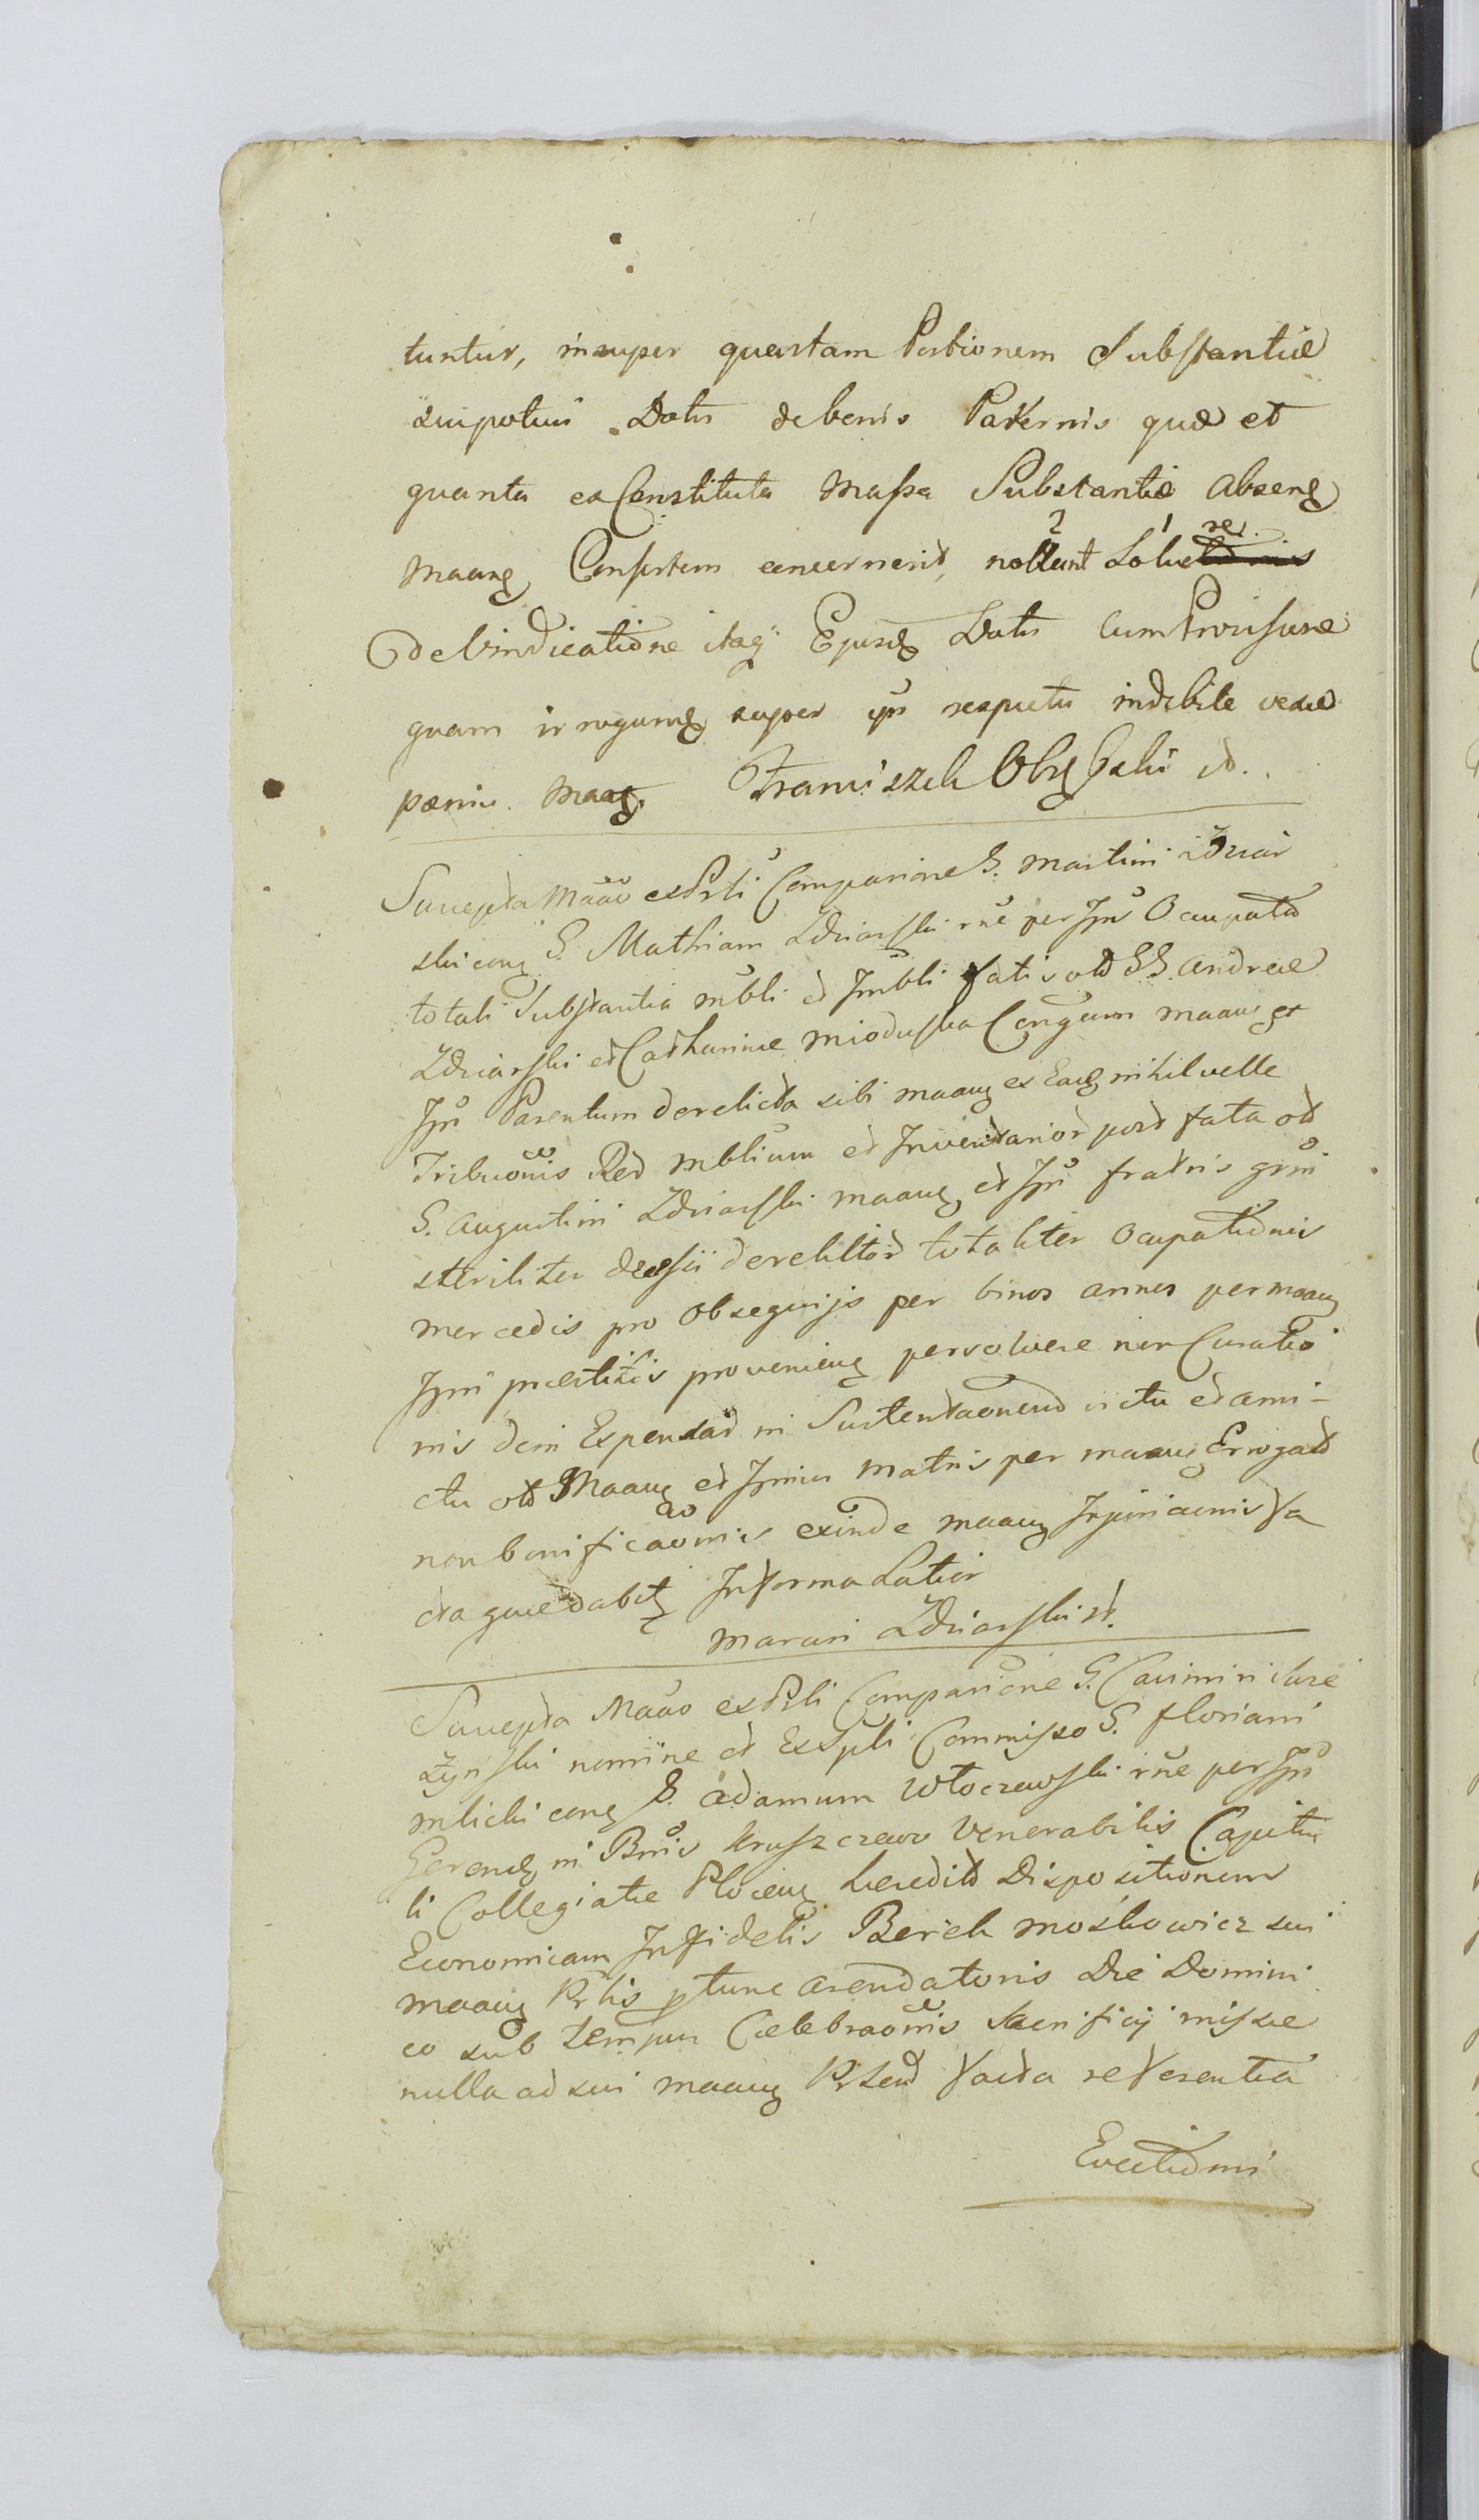 tuntur, insuper quartam Portionem Substantiæ
quipotius Dotis de bonis Paternis quæ et
quanta ex Constituta Massa Substantiæ absenꝫ
Maanꝫ Consortem concernerit, nollunt Solvere
de Vindicatione itaqꝫ Ejusdꝫ Dotis cum Provisione
quam irrogamꝫ super ipõ respectu indebite vexæ
pænis Maaꝫ. Franciszek Obrębski st.
Suscepta Maão ex Prli Comparõne G. Martini Zdziar
ski conꝫ G. Mathiam Zdziarski rñe per Ipm̃ Occupatæ
totali Substantia mobli et Im̃bli fatis old GG. Andreæ
Zdziarski et Catharinæ Mioduska Conjgum maanꝫ et
Ipsi Parentum derelicta sibi maanꝫ ex Eadꝫ nihil velle
Tribuõnis Red mblium et Inventarior post fata old
G. Augustini Zdziarski maanꝫ et Ipsi fratris grñi
steriliter decessi derelictor totaliter Ocupationis
mercedis pro Obsequijs per binos annos per maanꝫ
Ipm̃ præstitis provenienꝫ persolvere non Curatio
nis dein Expensar in Sustentaonem victu et ami-
ctu old Maanꝫ et Ipsius Matris per maanꝫ Erogat
non bonificaõnis exinde maanꝫ Injuriaonis fa
cta quæ dabitꝫ In forma Latiori
Marcin Zdziarski st.
Suscepta Maão ex Prli Comparõne G. Casimiri Szre
żyński nomine et Ex Spli Commisso G. Floriani
Mlicki conꝫ G. Adamum Włoczewski rñe per Ipm̃
Gerendꝫ in Bnis Kruszczewo Venerabilis Capitu
li Collegiatæ Plocenꝫ hæredit Dispositionem
Economicam Infidelis Berek Moskowicz sui
maanꝫ Prlis p̱ tunc arendatoris Die Domini
co sub tempus Cælebraõnis Sacrificij missæ
nulla ad sui maanꝫ Prsend facta referentia
Evectioni